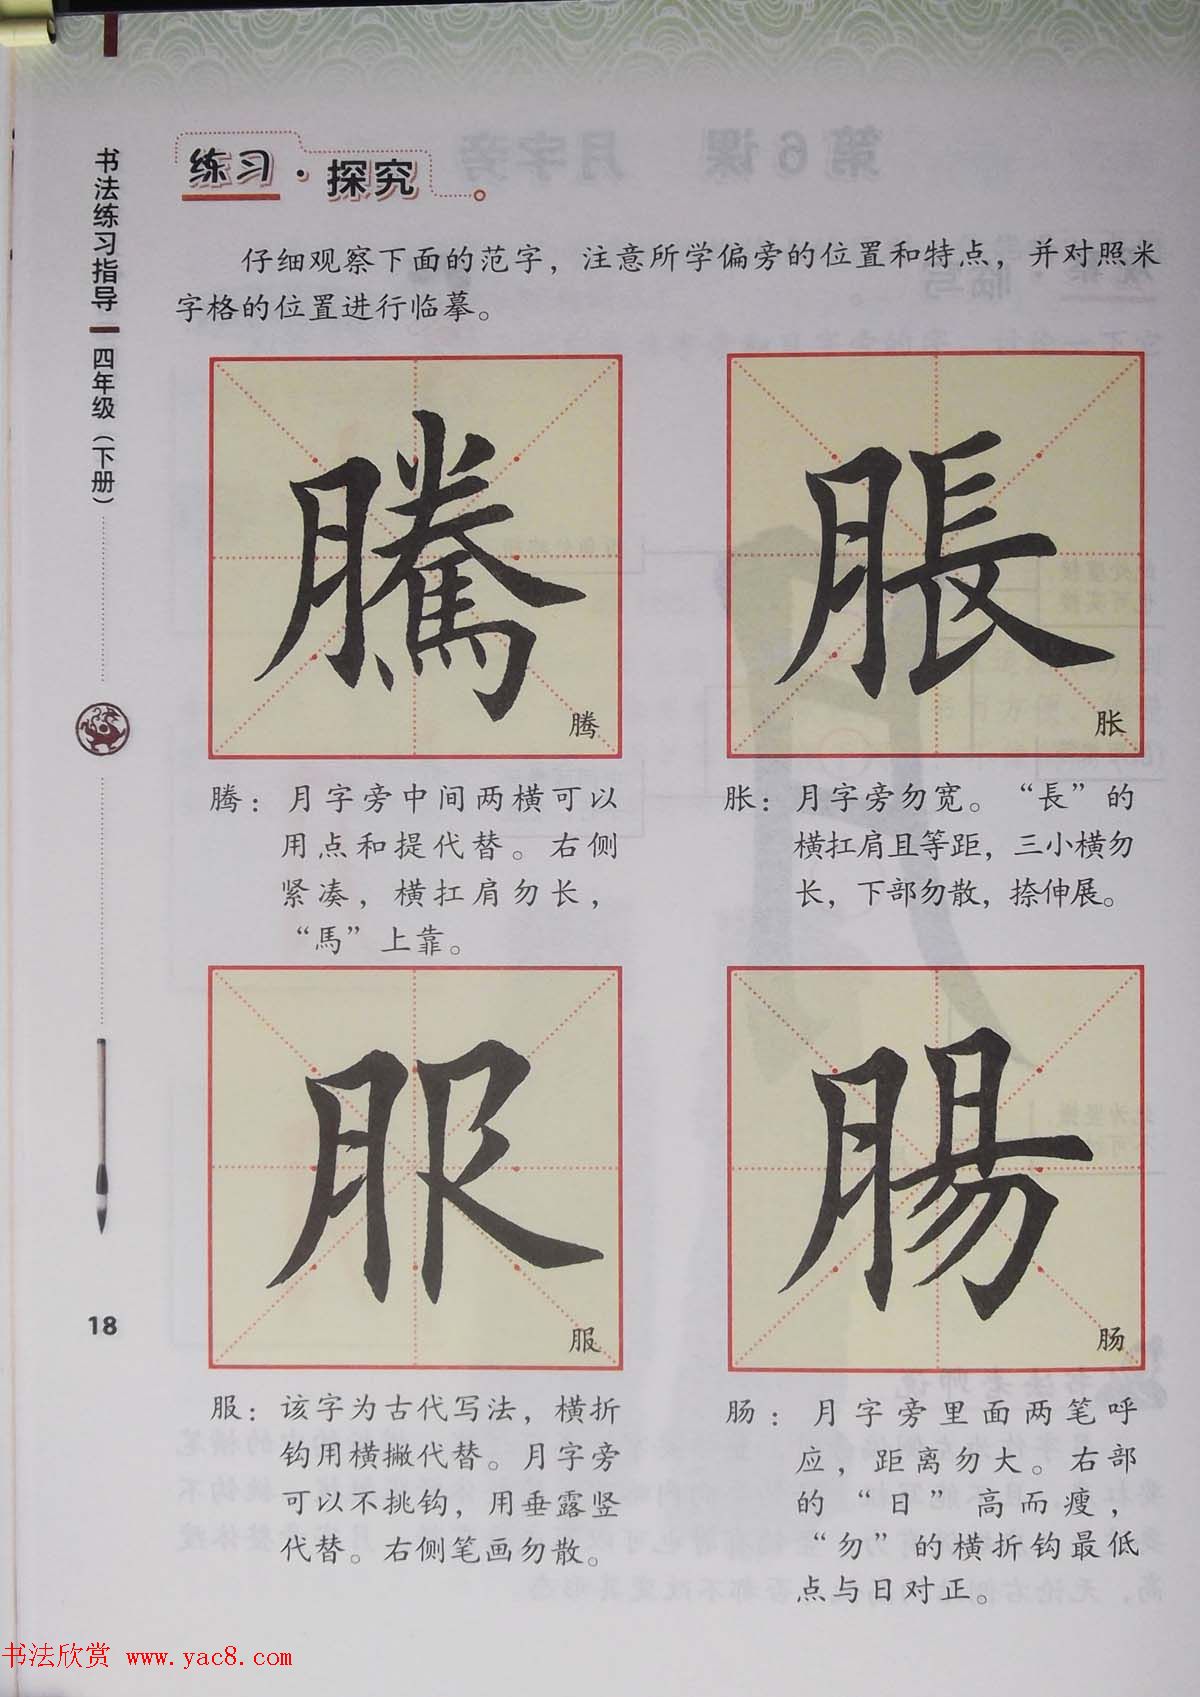 书法练习指导
四年级（下册）
18
练习·探究
仔细观察下面的范字，注意所学偏旁的位置和特点，并对照米
字格的位置进行临摹。
騰
腾
脹
胀
腾：月字旁中间两横可以
用点和提代替。右侧
紧凑，横扛肩勿长，
“馬”上靠。
胀：月字旁勿宽。“長”的
横扛肩且等距，三小横勿
长，下部勿散，捺伸展。
服
服
腸
肠
服：该字为古代写法，横折
钩用横撇代替。月字旁
可以不挑钩，用垂露竖
代替。右侧笔画勿散。
肠：月字旁里面两笔呼
应，距离勿大。右部
的“日”高而瘦，
“勿”的横折钩最低
点与日对正。
书法欣赏 www.yac8.com